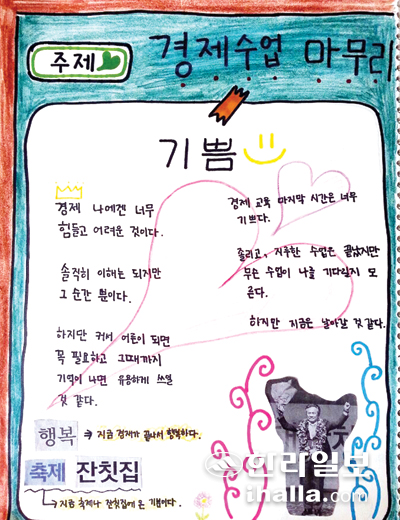 주제
경제수업 마무리
기쁨
경제 나에겐 너무
힘들고 어려운 것이다.
솔직히 이해는 되지만
그 순간 뿐이다.
하지만 커서 어른이 되면
꼭 필요하고 그때까지
기억이 나면 유용하게 쓰일
것 같다.
경제 교육 마지막 시간은 너무
기쁘다.
졸리고, 지루한 수업은 끝났지만
무슨 수업이 나를 기다릴지 모
른다.
하지만 지금은 날아갈 것 같다.
행복 → 지금 경제가 끝나서 행복하다.
축제 잔칫집
→ 지금 축제나 잔칫집에 온 기분이다.
한라일보
ihalla.com